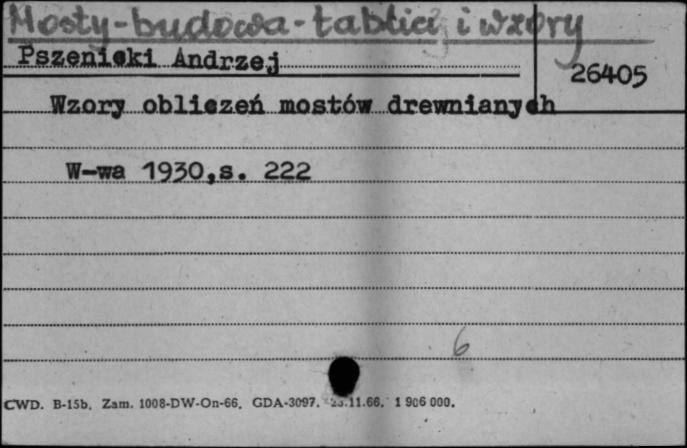 Mosty-budowa-tablice i wzory
Pszenicki Andrzej
26405
Wzory obliczeń mostów drewnianych
W-wa 1930,s. 222
6
CWD. B-15b. Zam. 1008-DW-On-66. GDA-3097. 23.11.66. 1 906 000.